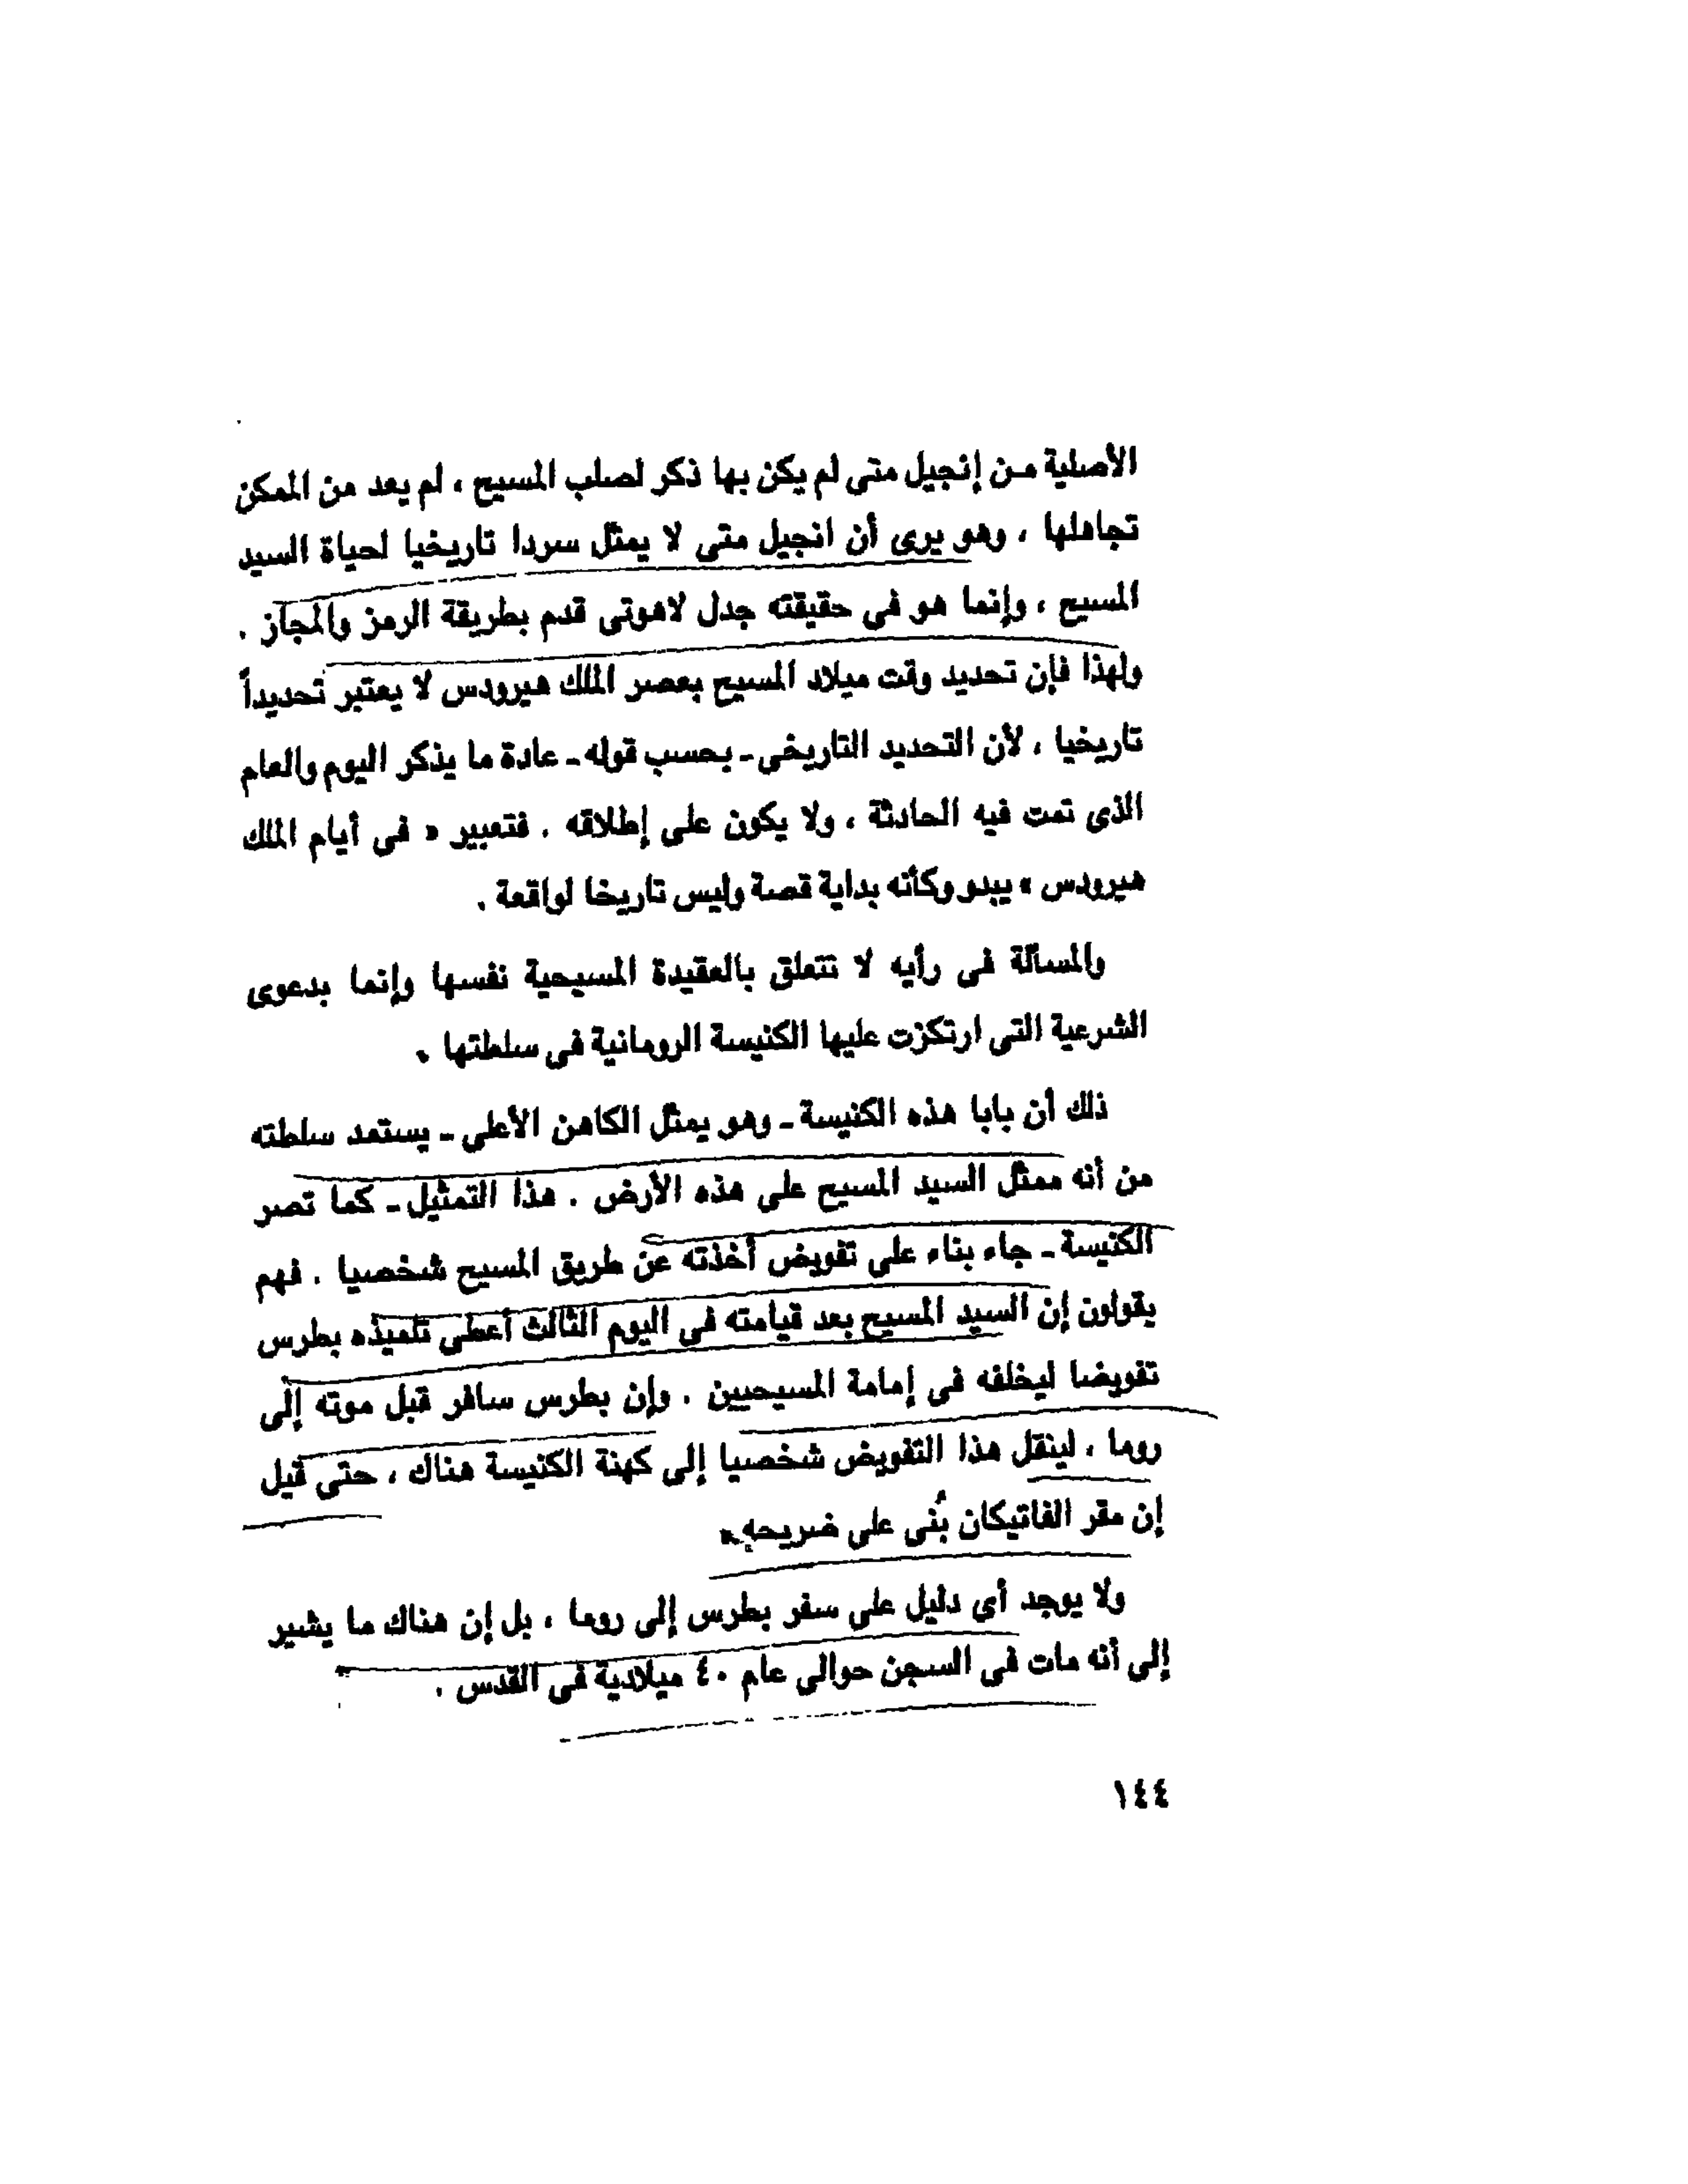 الأصلية مـن إنجيل متى لم يكن بها ذكر لصلب المسيح ، لم يعد من الممكن
تجاهلها ، وهو يرى أن انجيل متى لا يمثل سردا تاريخيا لحياة السيد
المسيح ، وإنما هو فى حقيقته جدل لاهوتى قدم بطريقة الرمز والمجاز .
ولهذا فإن تحديد وقت ميلاد المسيح بعصر الملك هيرودس لا يعتبر تحديداً
تاريخيا ، لأن التحديد التاريخى ـ بحسب قوله ـ عادة ما يذكر اليوم والعام
الذى تمت فيه الحادثة ، ولا يكون على إطلاقه . فتعبير « فى أيام الملك
هيرودس » يبدو وكأنه بداية قصة وليس تاريخا لواقعة .
والمسألة فى رأيه لا تتعلق بالعقيدة المسيحية نفسها وإنما بدعوى
الشرعية التى ارتكزت عليها الكنيسة الرومانية فى سلطتها .
ذلك أن بابا هذه الكنيسة ـ وهو يمثل الكاهن الأعلى ـ يستمد سلطته
من أنه ممثل السيد المسيح على هذه الأرض . هذا التمثيل ـ كما تصر
الكنيسة ـ جاء بناء على تفويض أخذته عن طريق المسيح شخصيا . فهم
يقولون إن السيد المسيح بعد قيامته فى اليوم الثالث أعطى تلميذه بطرس
تفويضا ليخلفه فى إمامة المسيحيين . وإن بطرس سافر قبل موته إلى
روما ، لينقل هذا التفويض شخصيا إلى كهنة الكنيسة هناك ، حتى قيل
إن مقر الفاتيكان بُنى على ضريحه .
ولا يوجد أي دليل على سفر بطرس إلى روما ، بل إن هناك ما يشير
إلى أنه مات فى السجن حوالى عام ٤٠ ميلادية فى القدس .
١٤٤